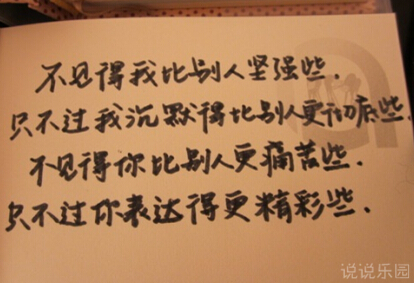 不见得我比别人坚强些.
只不过我沉默得比别人更彻底些.
不见得你比别人更痛苦些.
只不过你表达得更精彩些.
说说乐园